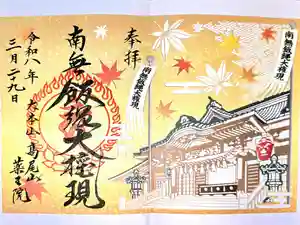 奉拝
南無飯縄大権現
令和八年
三月二十九日
大本山高尾山
薬王院
南無飯縄大権現
南無飯縄大権現